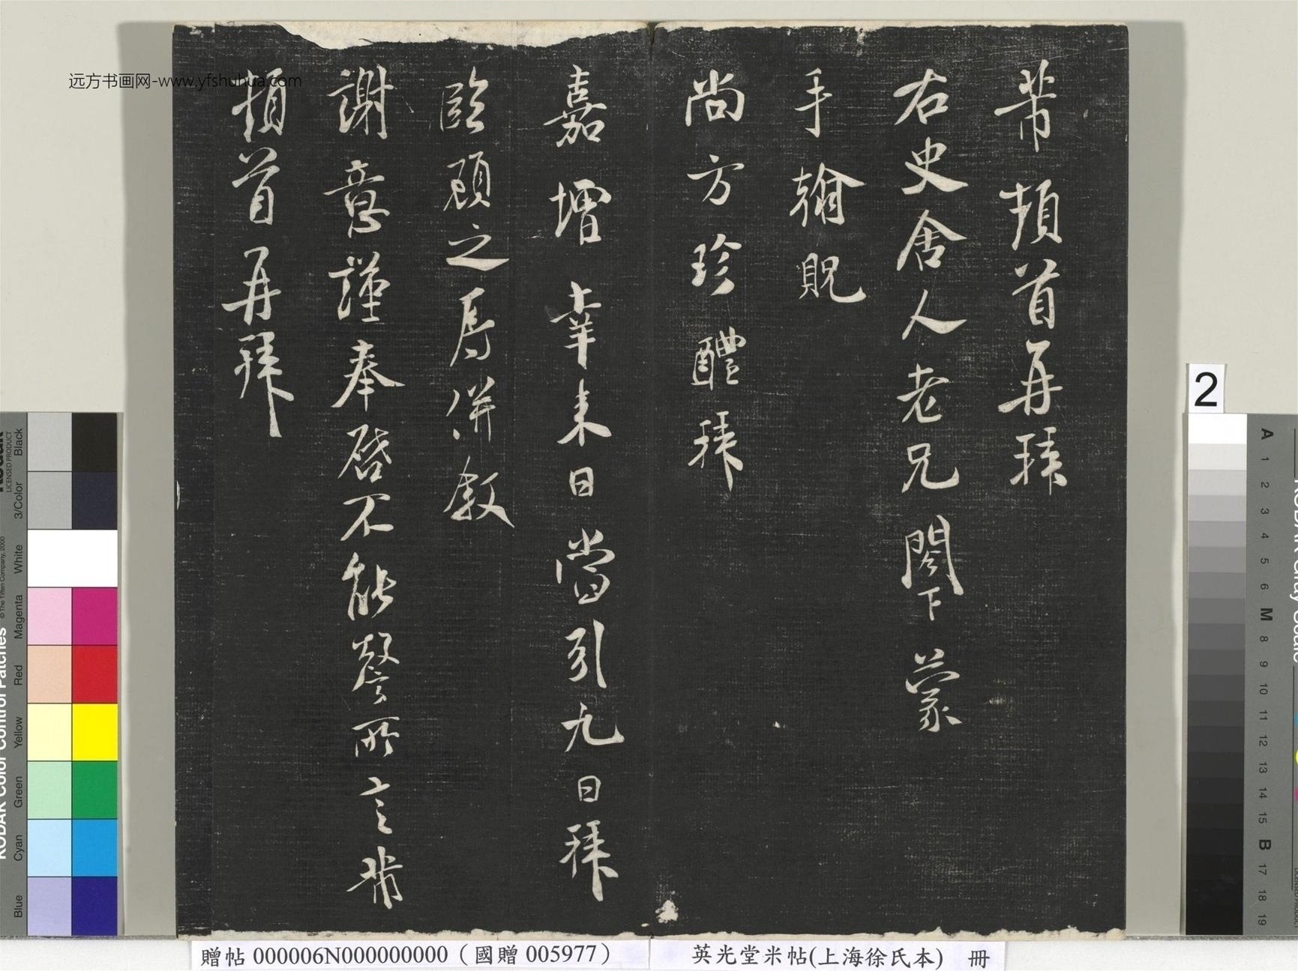 芾頓首再拜
右史舍人老兄閣下蒙
手翰貺
尚方珍醴拜
嘉增幸來日當引九日拜
臨顧之辱併敘
謝意謹奉啓不能罄所言芾
頓首再拜
远方书画网-www.yfshuhua.com
2
贈帖 000006N000000000（國贈 005977）
英光堂米帖(上海徐氏本) 冊
KODAK Color Control Patches
Blue Cyan Green Yellow Magenta Red White 3/Color Black
A 1 2 3 4 5 6 M 8 9 10 11 12 13 14 15 B 17 18 19